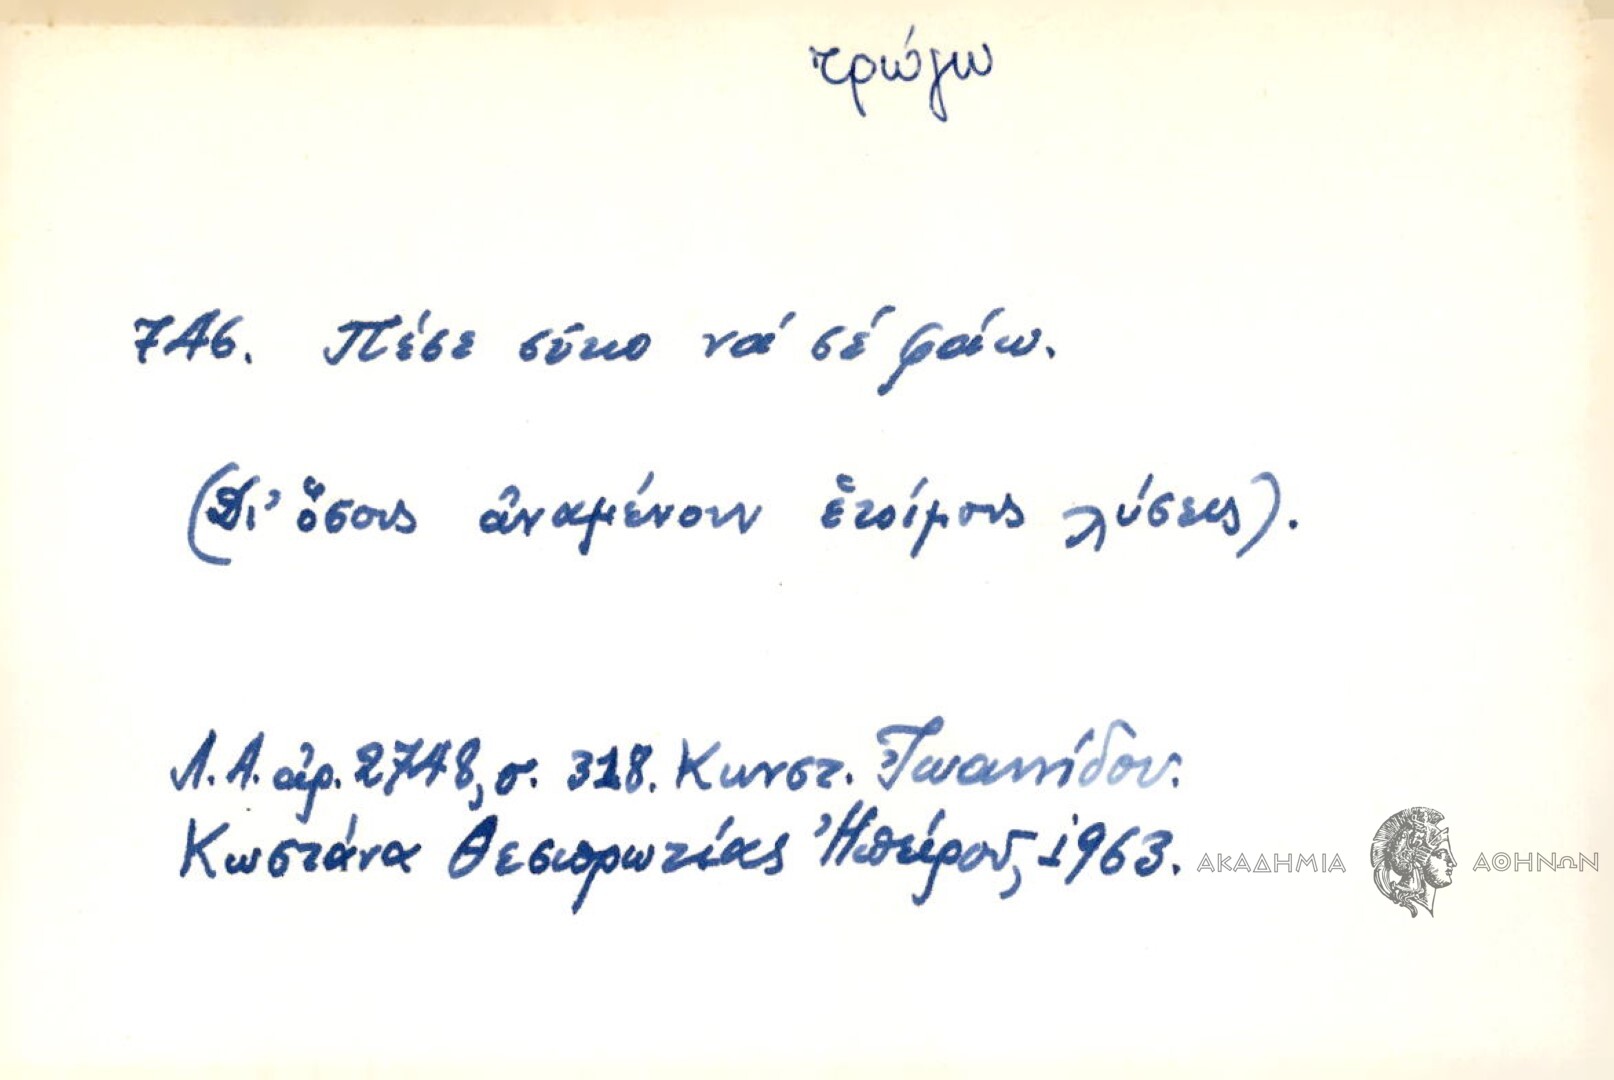 τρώγω
746. Πέσε σῦκο νά σέ φάω.
(Δι' ὅσους ἀναμένουν ἑτοίμους λύσεις).
Λ.Α. ἀρ. 2748, σ. 318. Κωνστ. Ἰωαννίδου.
Κωστάνα Θεσπρωτίας Ἠπείρου, 1963.
ΑΚΑΔΗΜΙΑ ΑΘΗΝΩΝ